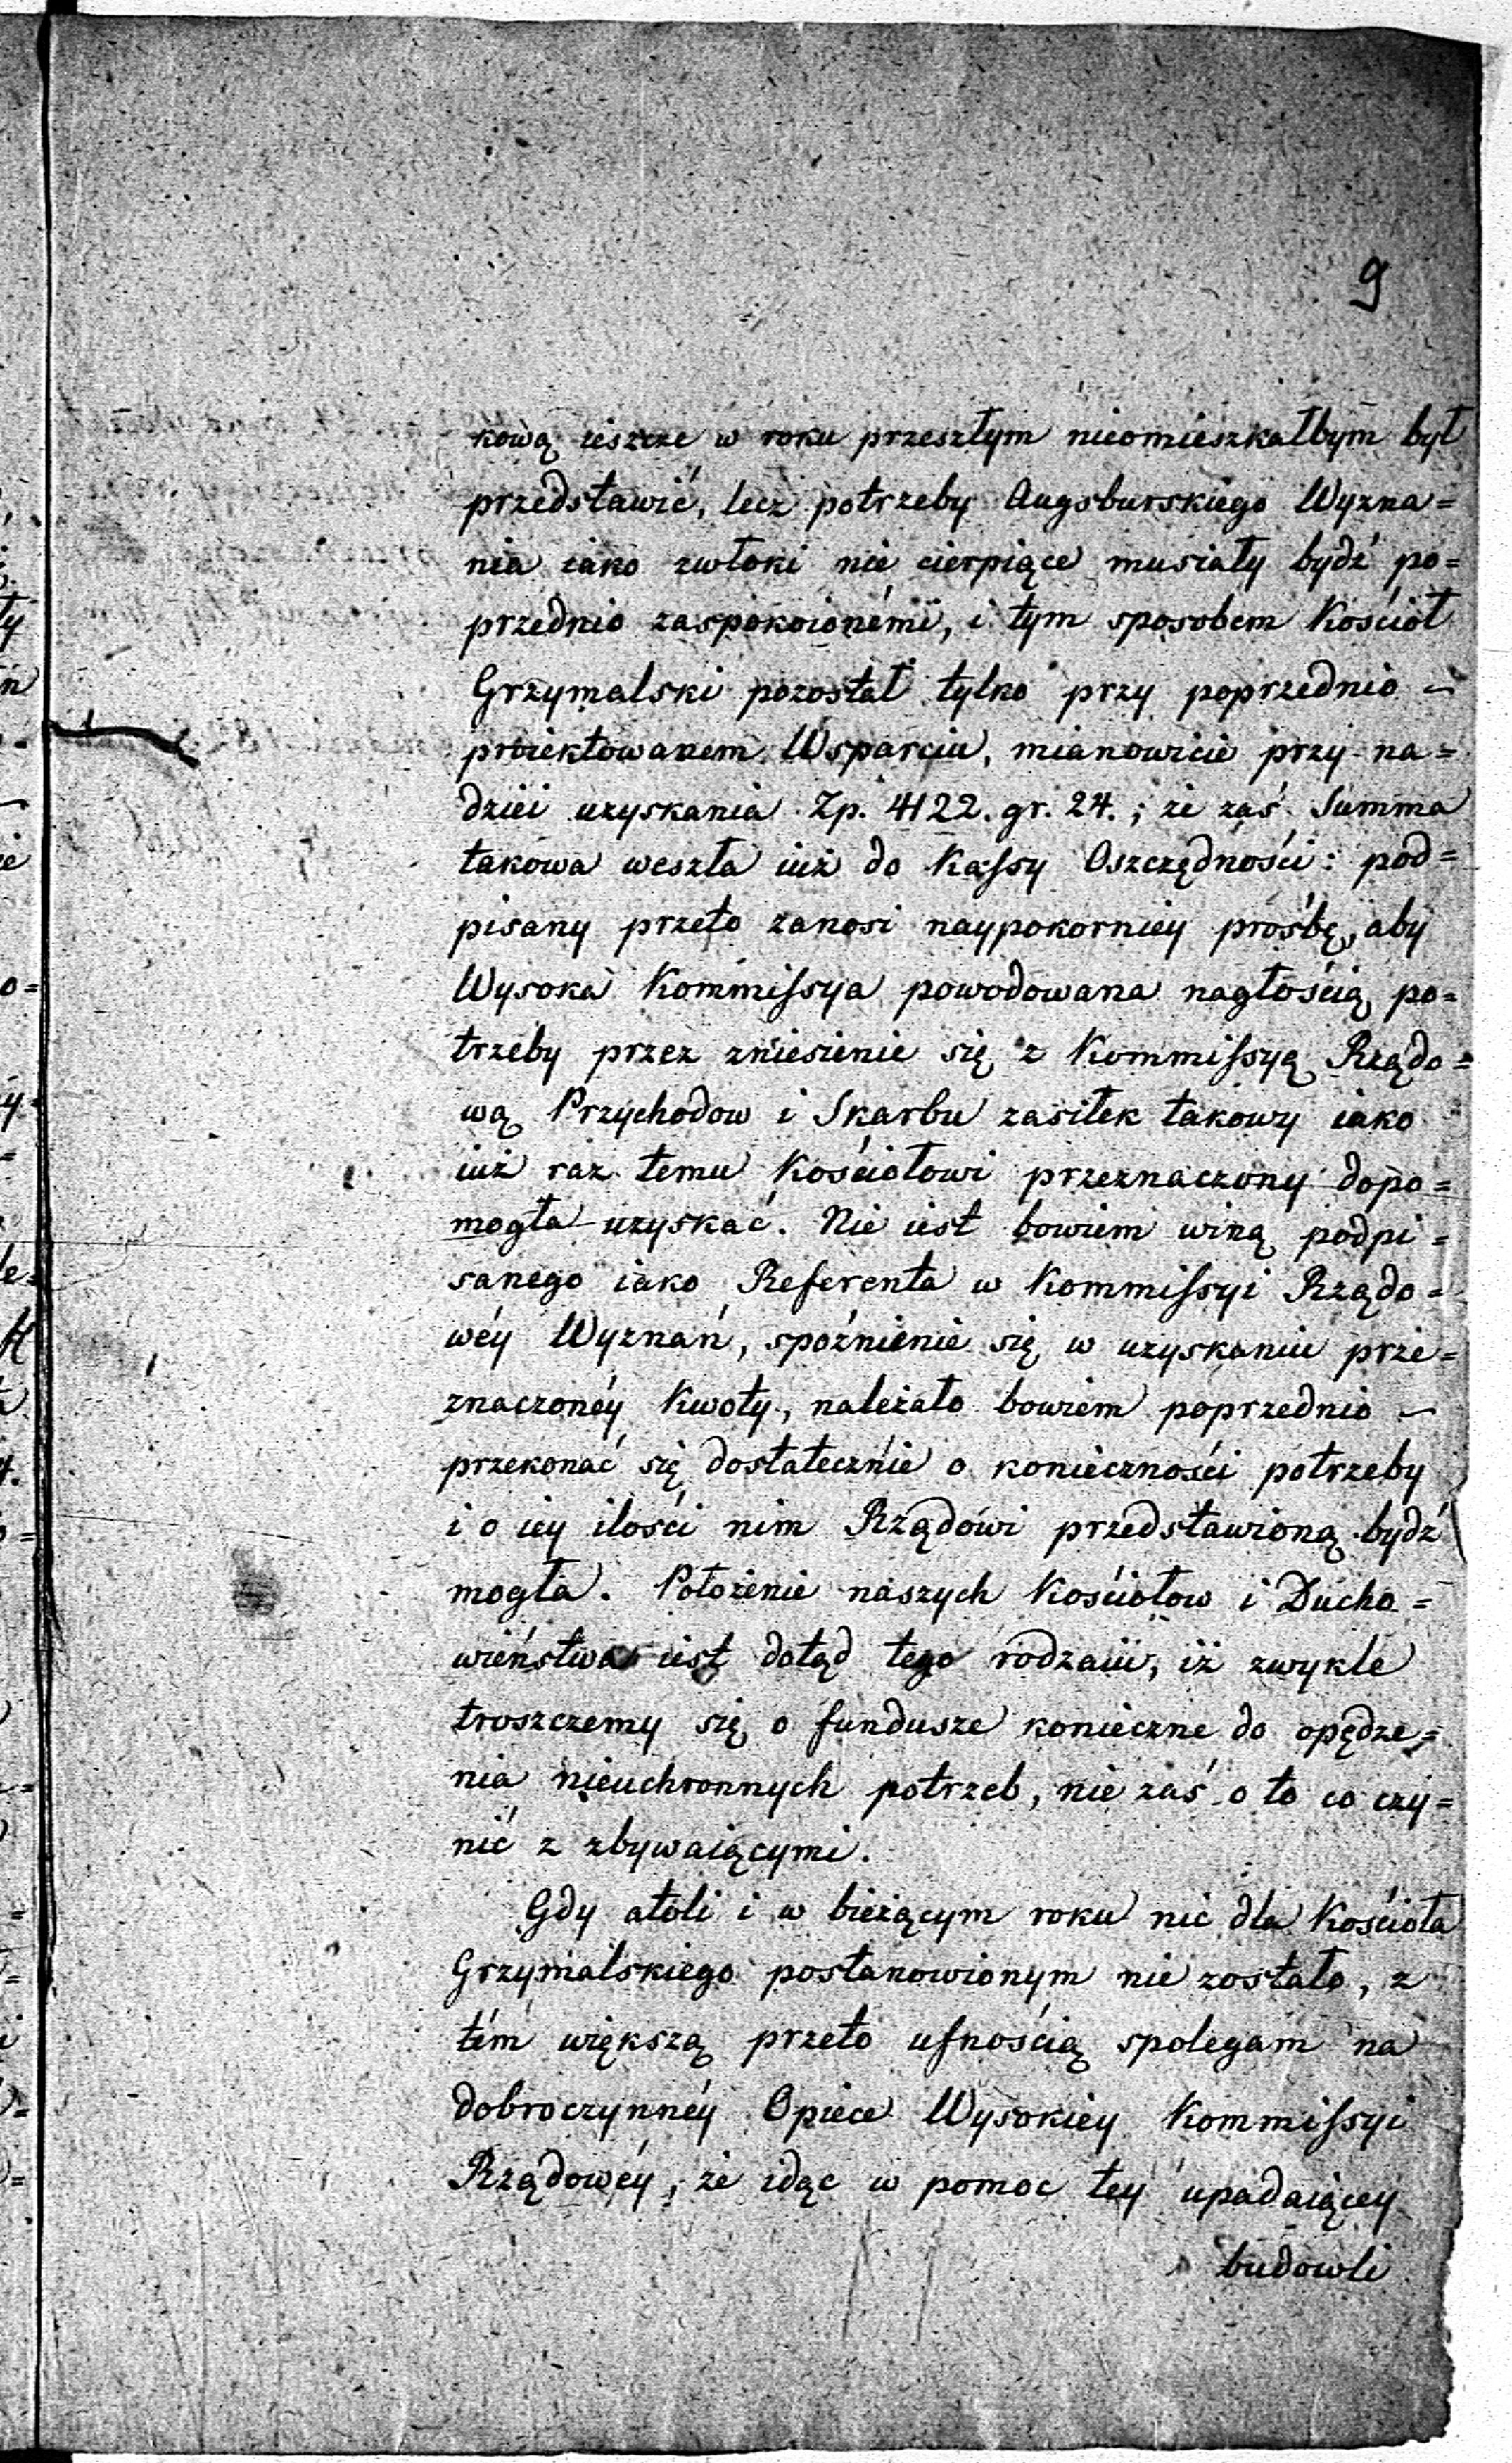 9
kową ieszcze w roku przeszłym nieomieszkałbym był
przedstawić, lecz potrzeby Augsburskiego Wyzna=
nia iako zwłoki nie cierpiące musiały bydź po=
przednio zaspokoionémi, i tym sposobem Kościół
Grzymalski pozostał tylko przy poprzednio ~
proiektowanem Wsparciu, mianowicie przy na=
dziei uzyskania Zp. 4122. gr. 24.; że zaś Summa
takowa weszła iuż do Kassy Oszczędności: pod=
pisany przeto zanosi naypokorniey prośbę, aby
Wysoka Kommissya powodowana nagłością po=
trzeby przez zniesienie się z Kommissyą Rządo=
wą Przychodow i Skarbu zasiłek takowy iako
iuż raz temu Kościołowi przeznaczony dopo=
mogła uzyskać. Nie iest bowiem winą podpi=
sanego iako Referenta w Kommissyi Rządo=
wéy Wyznań, spoźnienie się w uzyskaniu prze=
znaczonéy Kwoty, należało bowiem poprzednio ~
przekonać się dostatecznie o konieczności potrzeby
i o iey ilości nim Rządowi przedstawioną bydź
mogła. Położenie naszych Kościołow i Ducho=
wieństwa iest dotąd tego rodzaiu, iż zwykle
troszczemy się o fundusze konieczne do opędze=
nia nieuchronnych potrzeb, nie zaś o to co czy=
nić z zbywaiącymi.
Gdy atoli i w bieżącym roku nic dla Kościoła
Grzymalskiego postanowionym nie zostało, z
tém większą przeto ufnością spolegam na
dobroczynnéy Opiece Wysokiey Kommissyi
Rządowéy, że idąc w pomoc tey upadaiącey
budowli